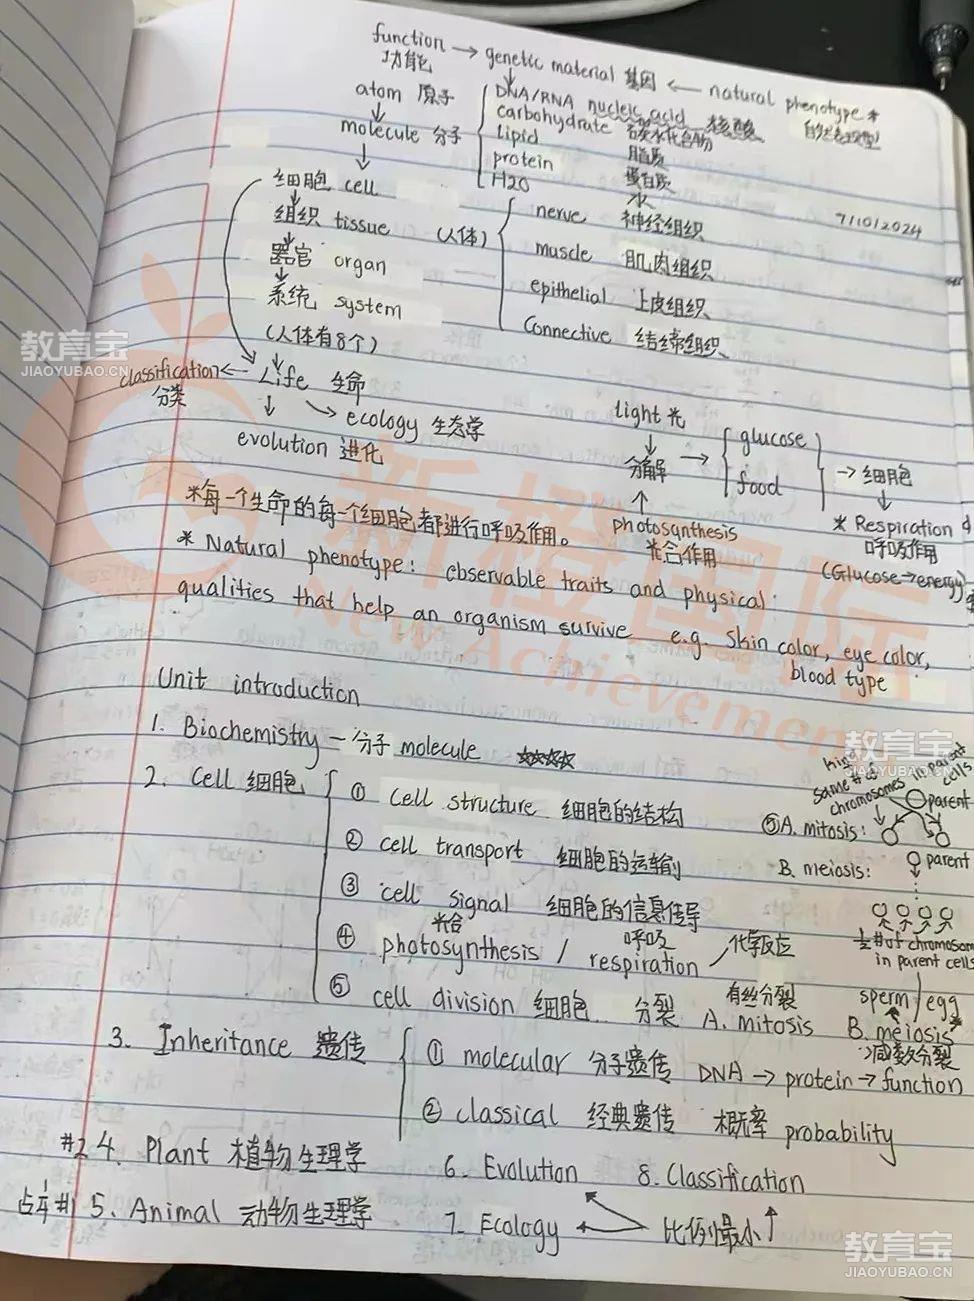 function → genetic material 基因 ← natural phenotype *
功能 自然表现型
atom 原子 DNA/RNA nucleic acid 核酸
carbohydrate 碳水化合物
molecule 分子 lipid 脂质
protein 蛋白质
H2O 水
细胞 cell
7/10/2024
组织 tissue (人体) nerve 神经组织
器官 organ muscle 肌肉组织
系统 system epithelial 上皮组织
(人体有8个) Connective 结缔组织
classification ← Life 生命
分类
ecology 生态学
evolution 进化
light 光
分解 → glucose
food → 细胞
photosynthesis
光合作用
* Respiration
呼吸作用
(Glucose→energy)
*每一个生命的每一个细胞都进行呼吸作用。
* Natural phenotype: observable traits and physical
qualities that help an organism survive e.g. skin color, eye color,
blood type
Unit introduction
1. Biochemistry - 分子 molecule
2. Cell 细胞
① cell structure 细胞的结构
② cell transport 细胞的运输
③ cell signal 细胞的信息传导
光合 呼吸
④ photosynthesis / respiration / 化学反应
有丝分裂
⑤ cell division 细胞 分裂 A. mitosis B. meiosis
减数分裂
same # of
chromosomes in parent
cells
parent
⑤A. mitosis:
B. meiosis: parent
½ # of chromosom
in parent cells
sperm/egg
3. Inheritance 遗传
① molecular 分子遗传 DNA → protein → function
② classical 经典遗传 概率 probability
#2 4. Plant 植物生理学
6. Evolution 8. Classification
占½ #1 5. Animal 动物生理学
7. Ecology 比例最小↑
教育宝
JIAOYUBAO.CN
教育宝
JIAOYUBAO.CN
教育宝
JIAOYUBAO.CN
新橙国际
New Achievement